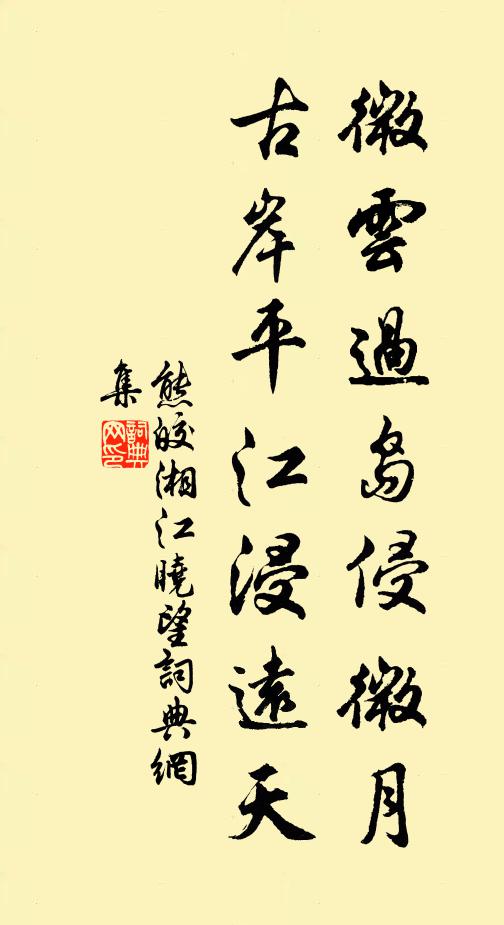 微雲過島侵微月
古岸平江浸遠天
熊皎湘江曉望詞典網
集
詞典
网印